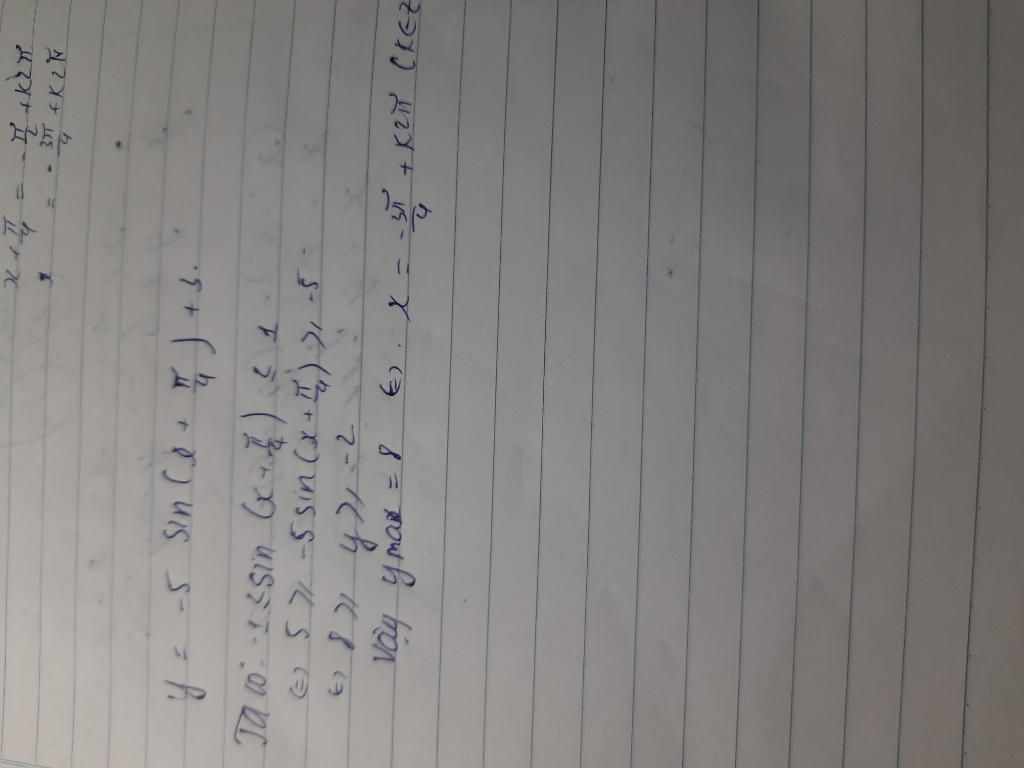 x + π/4 = -π/2 + k2π
x = -3π/4 + k2π
y = -5 sin(x + π/4) + 3.
Ta có: -1 ≤ sin (x + π/4) ≤ 1
⇔ 5 ≥ -5 sin(x + π/4) ≥ -5
⇔ 8 ≥ y ≥ -2
Vậy y max = 8 ⇔ x = -3π/4 + k2π (k ∈ Z